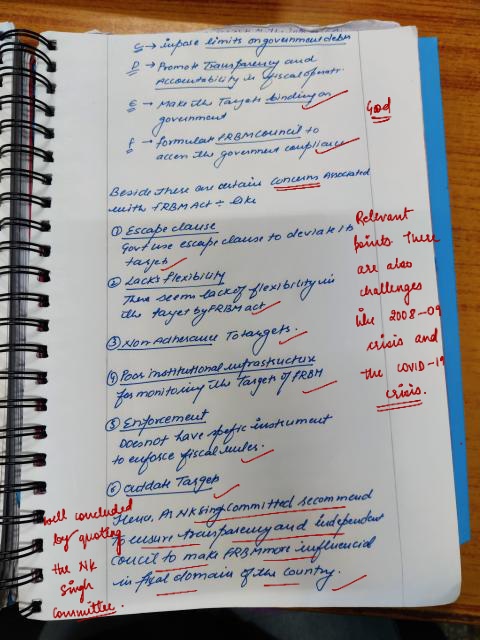 C → impose limits on government debts
D → Promote Transparency and
Accountability in fiscal operati
E - Make the Targets binding on
government
F → formulate FRBM council to
access the government compliance
Good
Beside these are certain concerns Associated
with FRBM Act ÷ like
① Escape clause
Govt use escape clause to deviate its
target
② Lacks flexibility
There seems lack of flexibility in
the target by FRBM act
③ Non-Adherance To targets.
④ Poor institutional infrastructure
for monitoring the Targets of FRBM
⑤ Enforcement
Does not have specific instrument
to enforce fiscal rules.
⑥ outdate Targets
Relevant
points There
are also
challenges
like 2008-09
crisis and
the COVID-19
crisis.
Hence, As NK Sing Committed recommend
To ensure transparency and independent
council to make FRBM more influencial
in fiscal domain of the country.
well concluded
by quoting
the NK
Singh
Committee.